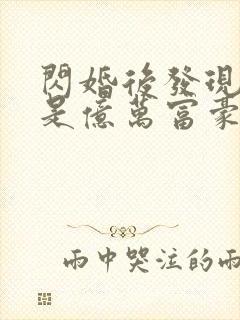 閃婚後發現
是億萬富豪
雨中哭泣的雨